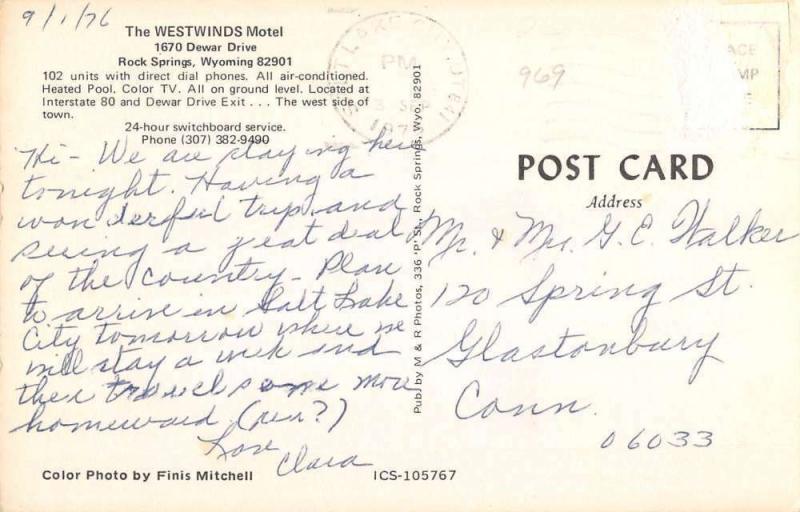 9/1/76
The WESTWINDS Motel
1670 Dewar Drive
Rock Springs, Wyoming 82901
102 units with direct dial phones. All air-conditioned.
Heated Pool. Color TV. All on ground level. Located at
Interstate 80 and Dewar Drive Exit . . . The west side of
town.
24-hour switchboard service.
Phone (307) 382-9490
Hi - We are staying here
tonight. Having a
wonderful trip and
seeing a great deal
of the country - Plan
to arrive in Salt Lake
City tomorrow where we
will stay a week and
then travel some more
homeward
Love
Clara
Color Photo by Finis Mitchell
ICS-105767
Pub. by M & R Photos, 336 'P' St., Rock Springs, Wyo. 82901
SALT LAKE CITY, UT 841
PM
3 SEP
969
POST CARD
Address
Mr. & Mrs. G. C. Walker
120 Spring St.
Glastonbury
Conn.
06033